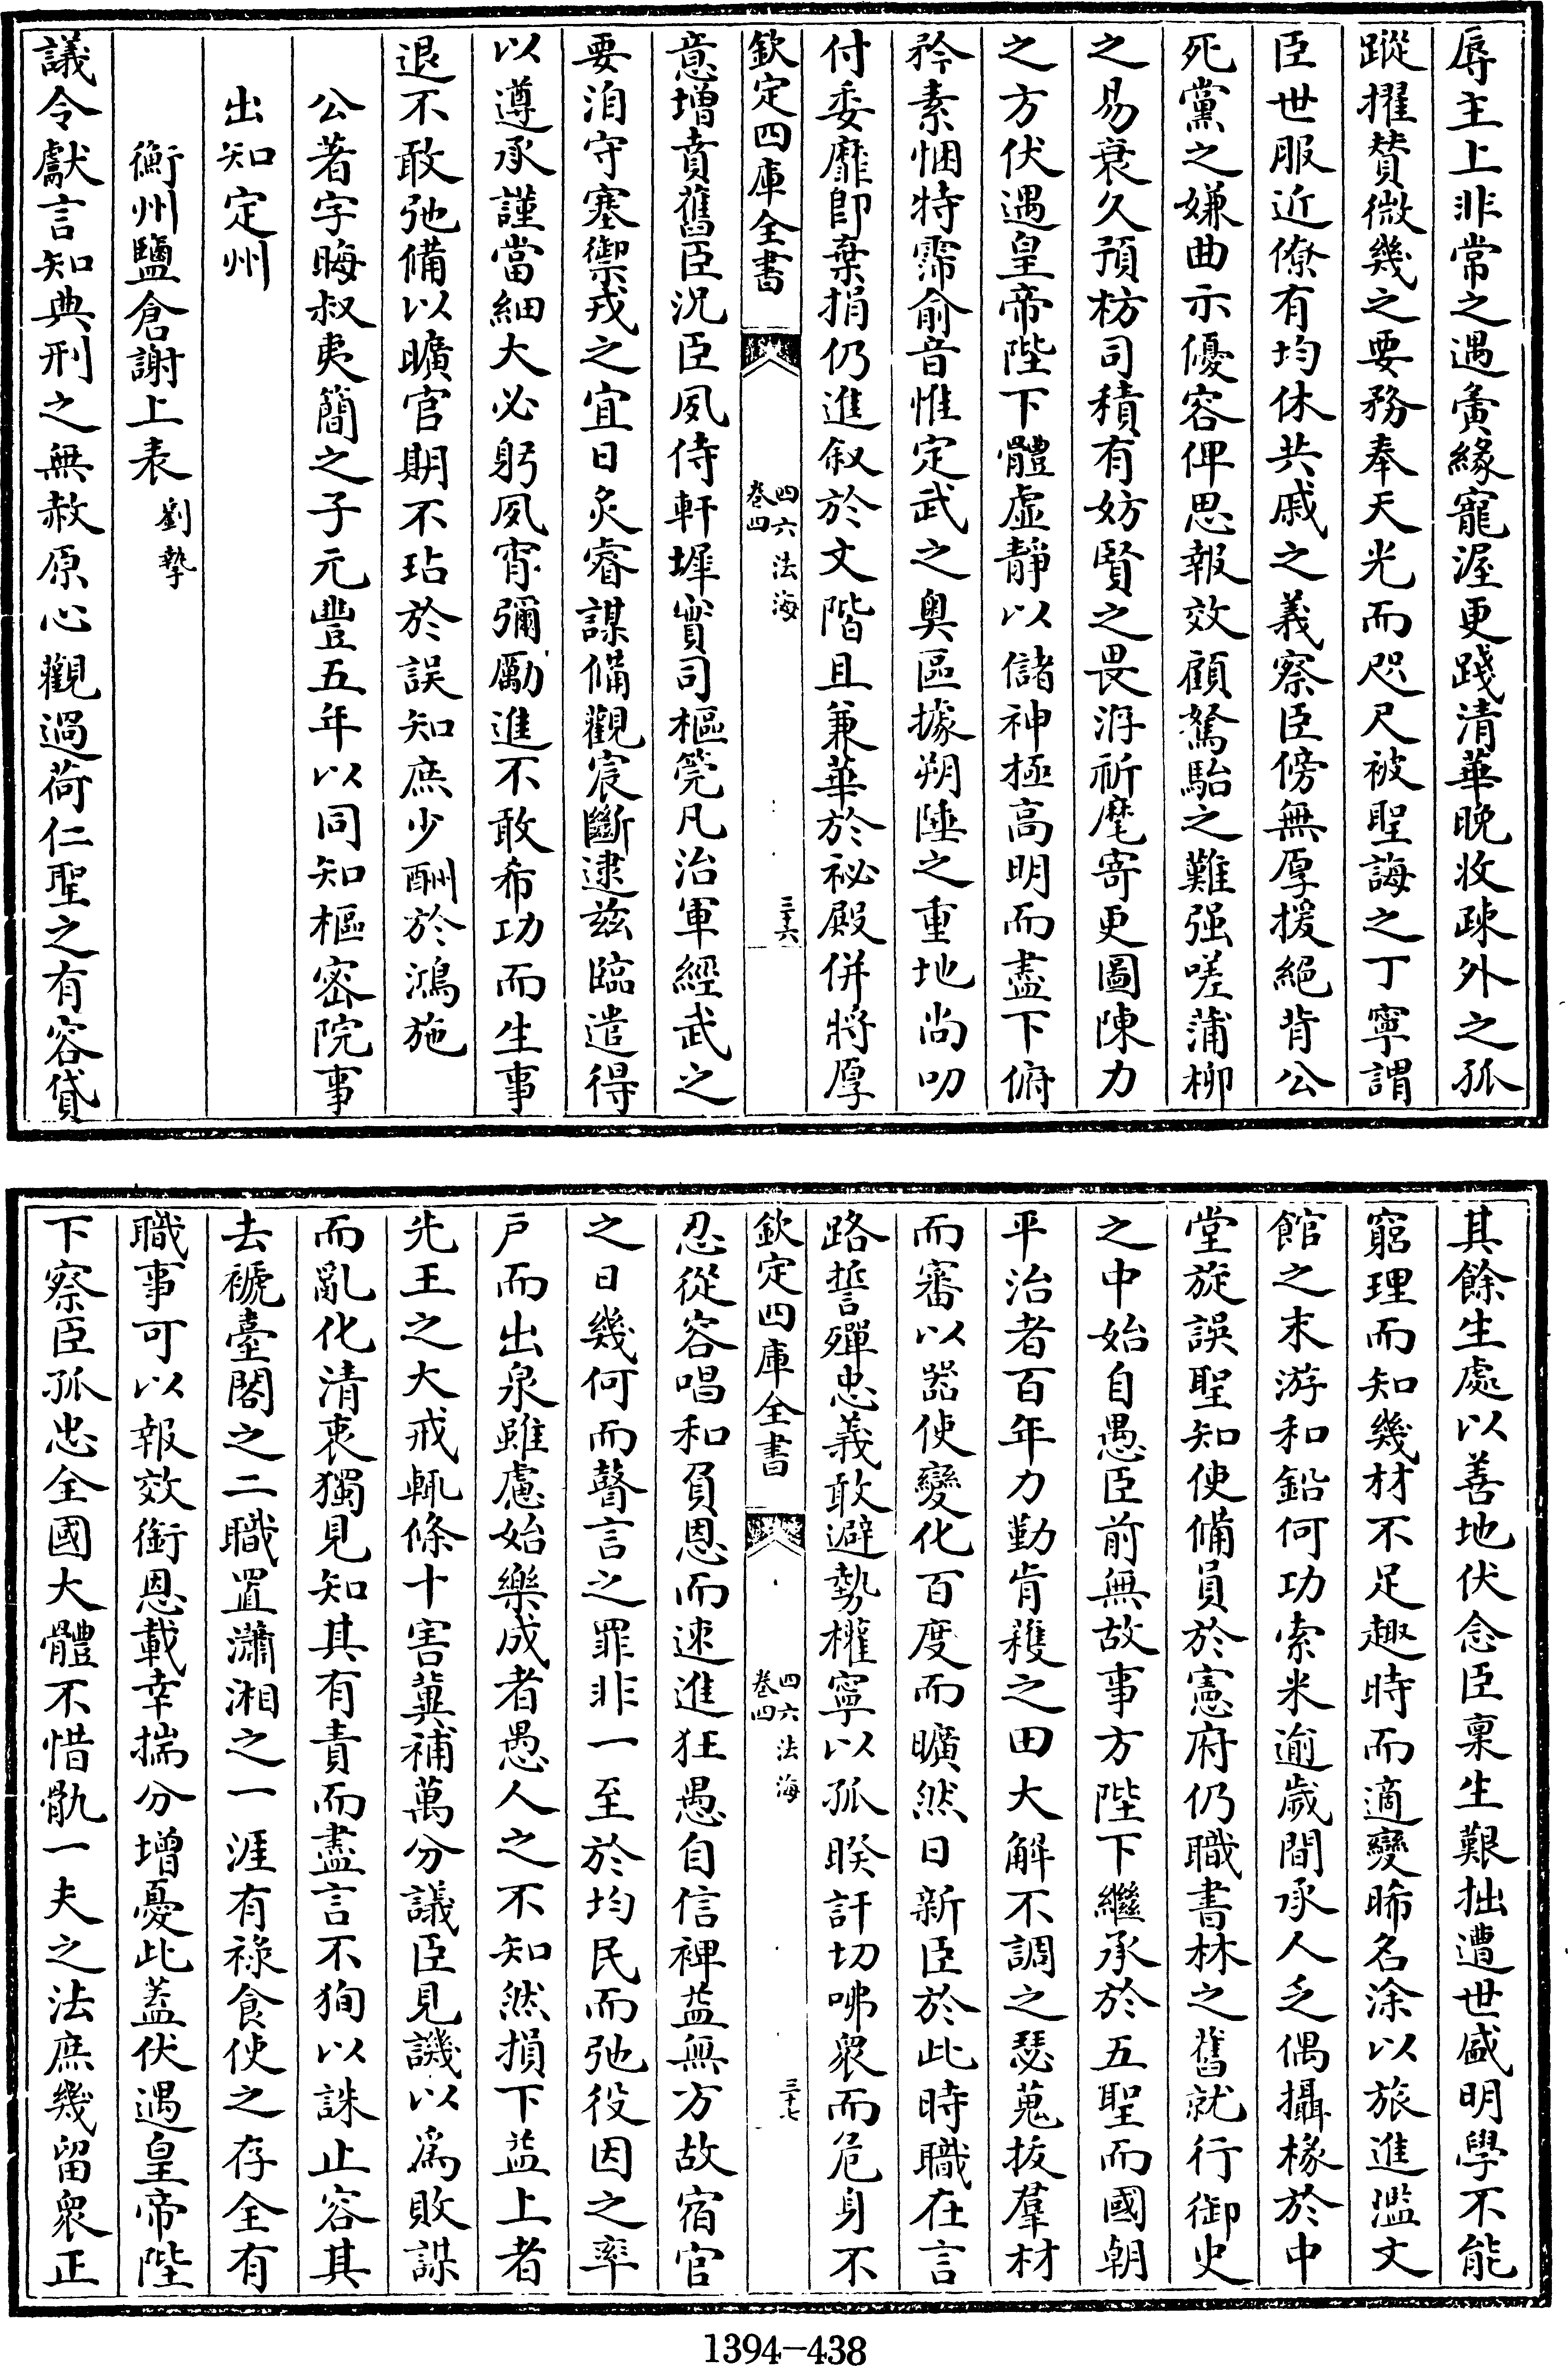 辱主上非常之遇夤緣寵渥更踐清華晚收疎外之孤
蹤擢贊微幾之要務奉天光而咫尺被聖誨之丁寧謂
臣世服近僚有均休共戚之義察臣傍無厚援絕背公
死黨之嫌曲示優容俾思報效顧駑駘之難强嗟蒲柳
之易衰久預枋司積有妨賢之畏洊祈麾寄更圖陳力
之方伏遇皇帝陛下體虛靜以儲神極高明而盡下俯
矜素悃特霈俞音惟定武之奥區據朔陲之重地尚叨
付委靡即棄捐仍進叙於文階且兼華於祕殿併將厚
欽定四庫全書
四六法海
卷四
三十六
意增賁舊臣況臣夙侍軒墀實司樞筦凡治軍經武之
要洎守塞禦戎之宜日炙睿謀備觀宸斷逮兹臨遣得
以遵承謹當細大必躬夙宵彌勵進不敢希功而生事
退不敢弛備以曠官期不玷於誤知庶少酬於鴻施
公著字晦叔夷簡之子元豐五年以同知樞密院事
出知定州
衡州鹽倉謝上表劉摯
議令獻言知典刑之無赦原心觀過荷仁聖之有容貸
其餘生處以善地伏念臣稟生艱拙遭世盛明學不能
窮理而知幾材不足趣時而適變晞名涂以旅進濫文
館之末游和鉛何功索米逾歲間承人乏偶攝椽於中
堂旋誤聖知使備員於憲府仍職書林之舊就行御史
之中始自愚臣前無故事方陛下繼承於五聖而國朝
平治者百年力勤肯穫之田大解不調之瑟蒐拔羣材
而審以器使變化百度而曠然日新臣於此時職在言
路誓殫忠義敢避勢權寧以孤暌訐切咈衆而危身不
欽定四庫全書
四六法海
卷四
三十七
忍從容唱和負恩而速進狂愚自信裨益無方故宿官
之日幾何而瞽言之罪非一至於均民而弛役因之率
戶而出泉雖慮始樂成者愚人之不知然損下益上者
先王之大戒輒條十害冀補萬分議臣見譏以爲敗謀
而亂化清衷獨見知其有責而盡言不狥以誅止容其
去褫臺閣之二職置瀟湘之一涯有祿食使之存全有
職事可以報效銜恩載幸揣分增憂此蓋伏遇皇帝陛
下察臣孤忠全國大體不惜骫一夫之法庶幾留衆正
1394-438